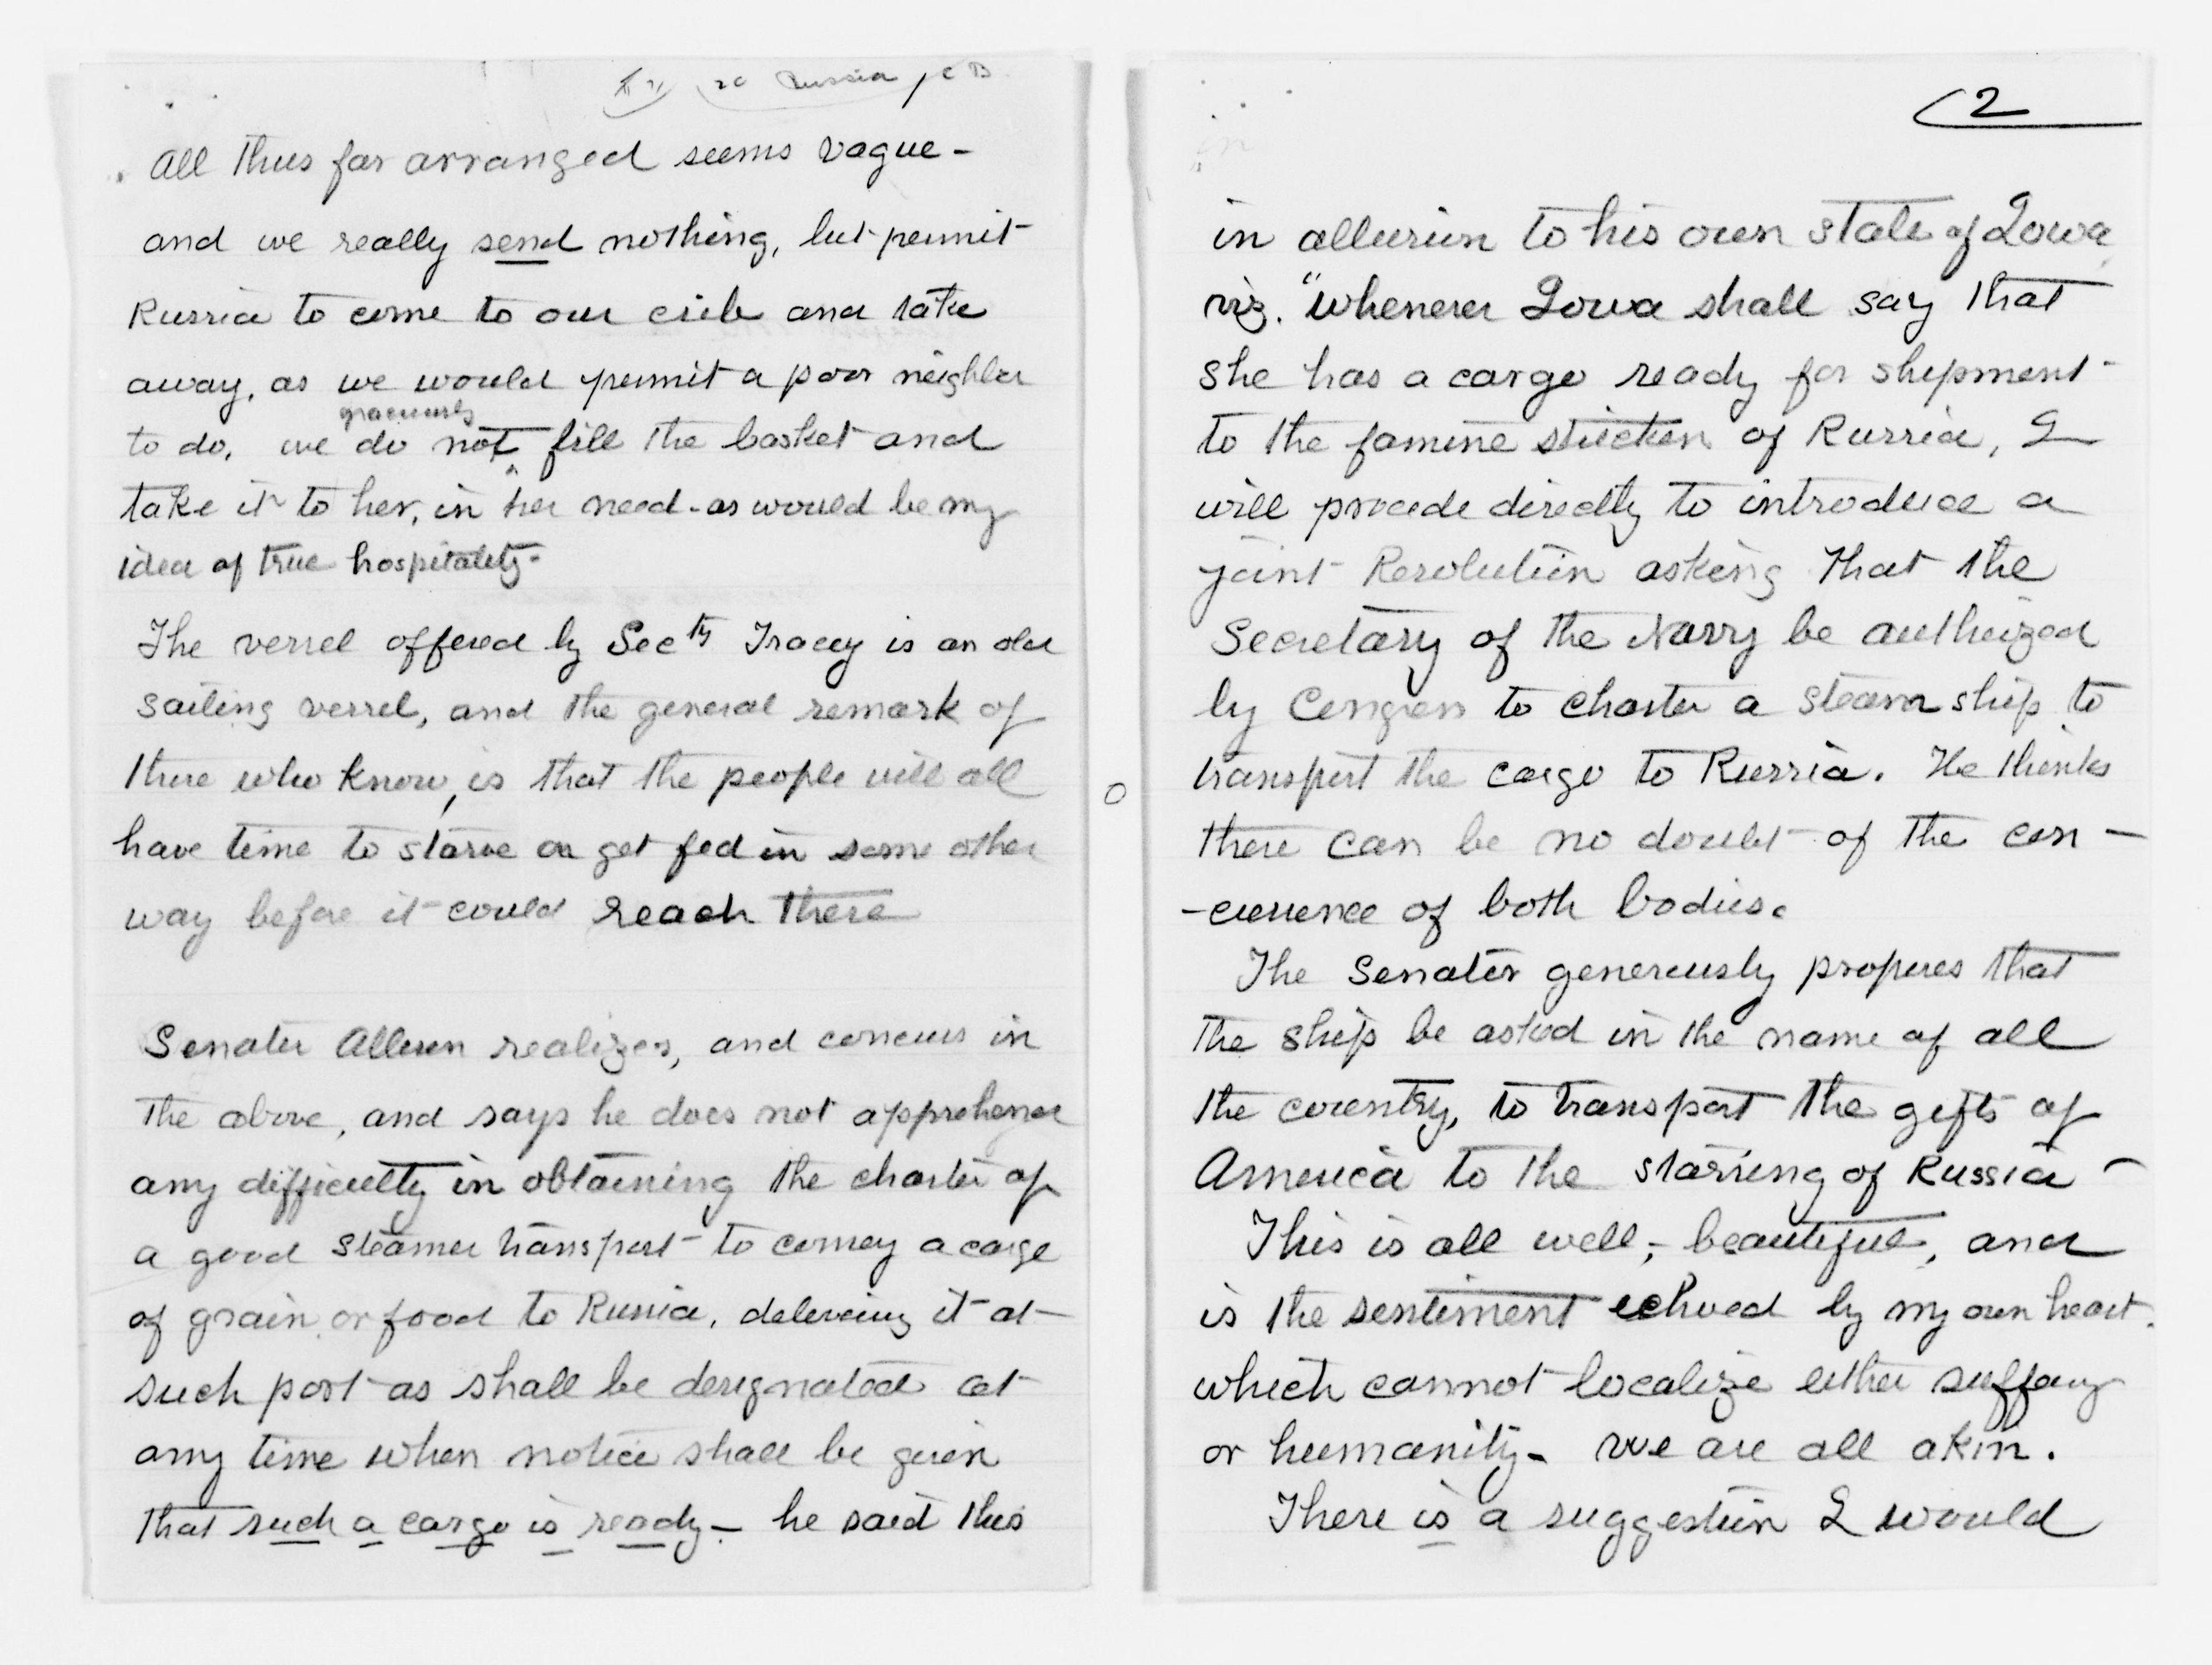 Russia / C B
All thus far arranged seems vague -
and we really send nothing, but permit
Russia to come to our crib and take
away, as we would permit a poor neighbor
graciously
to do, we do not fill the basket and
take it to her, in her need - as would be my
idea of true hospitality -
The vessel offered by Secty Tracey is an old
sailing vessel, and the general remark of
those who know, is that the people will all
have time to starve or get fed in some other
way before it could reach there
Senator Allison realizes, and concurs in
the above, and says he does not apprehend
any difficulty in obtaining the charter of
a good steamer transport to convey a cargo
of grain or food to Russia, delivering it at
such port as shall be designated at
any time when notice shall be given
that such a cargo is ready - he said this
2
in allusion to his own state of Iowa,
viz. "whenever Iowa shall say that
she has a cargo ready for shipment
to the famine stricken of Russia, I
will procede directly to introduce a
joint Resolution asking that the
Secretary of the Navy be authorized
by Congress to charter a steam ship to
transport the cargo to Russia. He thinks
there can be no doubt of the con -
-currence of both bodies.
The Senator generously proposes that
the ship be asked in the name of all
the country, to transport the gifts of
America to the starving of Russia -
This is all well, - beautiful, and
is the sentiment echoed by my own heart.
which cannot localize either suffering
or humanity - we are all akin.
There is a suggestion I would